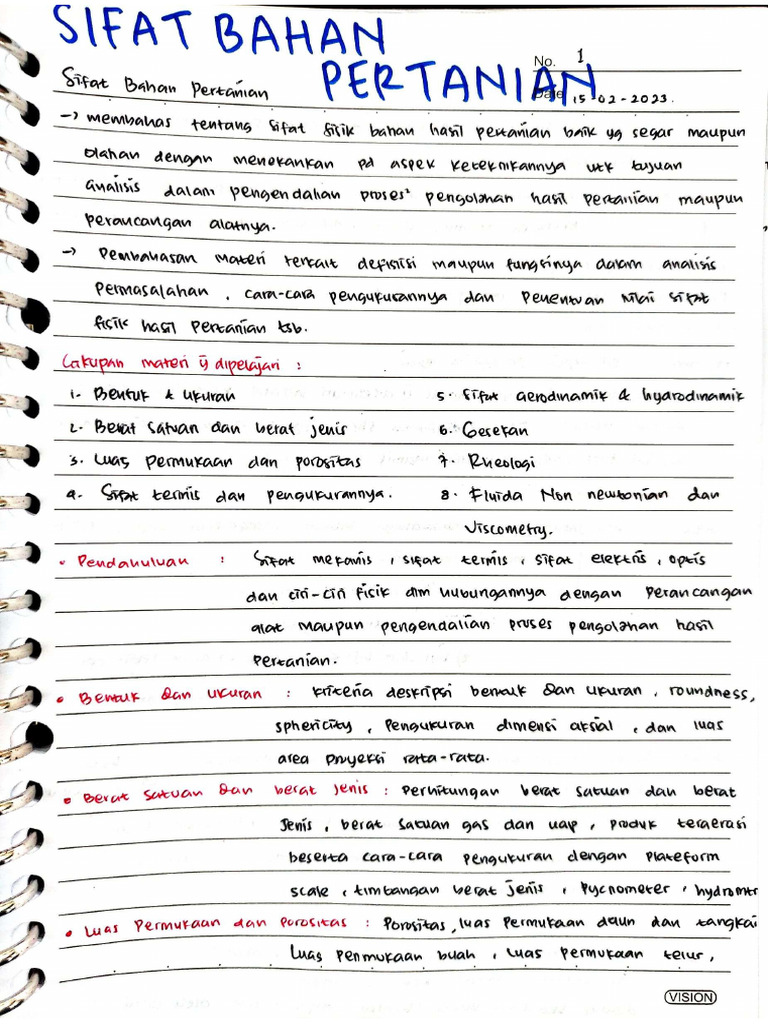 SIFAT BAHAN
PERTANIAN
No. 1
Date 15-02-2023.
Sifat Bahan Pertanian
-> membahas tentang sifat fisik bahan hasil pertanian baik yg segar maupun
olahan dengan menekankan pd aspek keteknikannya utk tujuan
analisis dalam pengendalian proses² pengolahan hasil pertanian maupun
perancangan alatnya.
-> Pembahasan materi terkait definisi maupun fungsinya dalam analisis
permasalahan, cara-cara pengukurannya dan Penentuan nilai sifat
fisik hasil Pertanian tsb.
Cakupan materi yg dipelajari :
1. Bentuk & ukuran
2. Berat satuan dan berat jenis
3. Luas permukaan dan porositas
4. Sifat termis dan pengukurannya.
5. Sifat aerodinamik & hydrodinamik
6. Gesekan
7. Rheologi
8. Fluida Non newtonian dan
Viscometry.
• Pendahuluan : Sifat mekanis, sifat termis, sifat elektris, optis
dan ciri-ciri fisik dlm hubungannya dengan perancangan
alat maupun pengendalian proses pengolahan hasil
pertanian.
• Bentuk dan ukuran : kriteria deskripsi bentuk dan ukuran, roundness,
sphericity, Pengukuran dimensi aksial, dan luas
area proyeksi rata-rata.
• Berat satuan dan berat jenis : Perhitungan berat satuan dan berat
Jenis, berat satuan gas dan uap, produk teraerasi
beserta cara-cara pengukuran dengan plateform
scale, timbangan berat jenis, Pycnometer, hydromtr
• Luas Permukaan dan Porositas : Porositas, luas permukaan daun dan tangkai
Luas permukaan buah, luas permukaan telur,
VISION